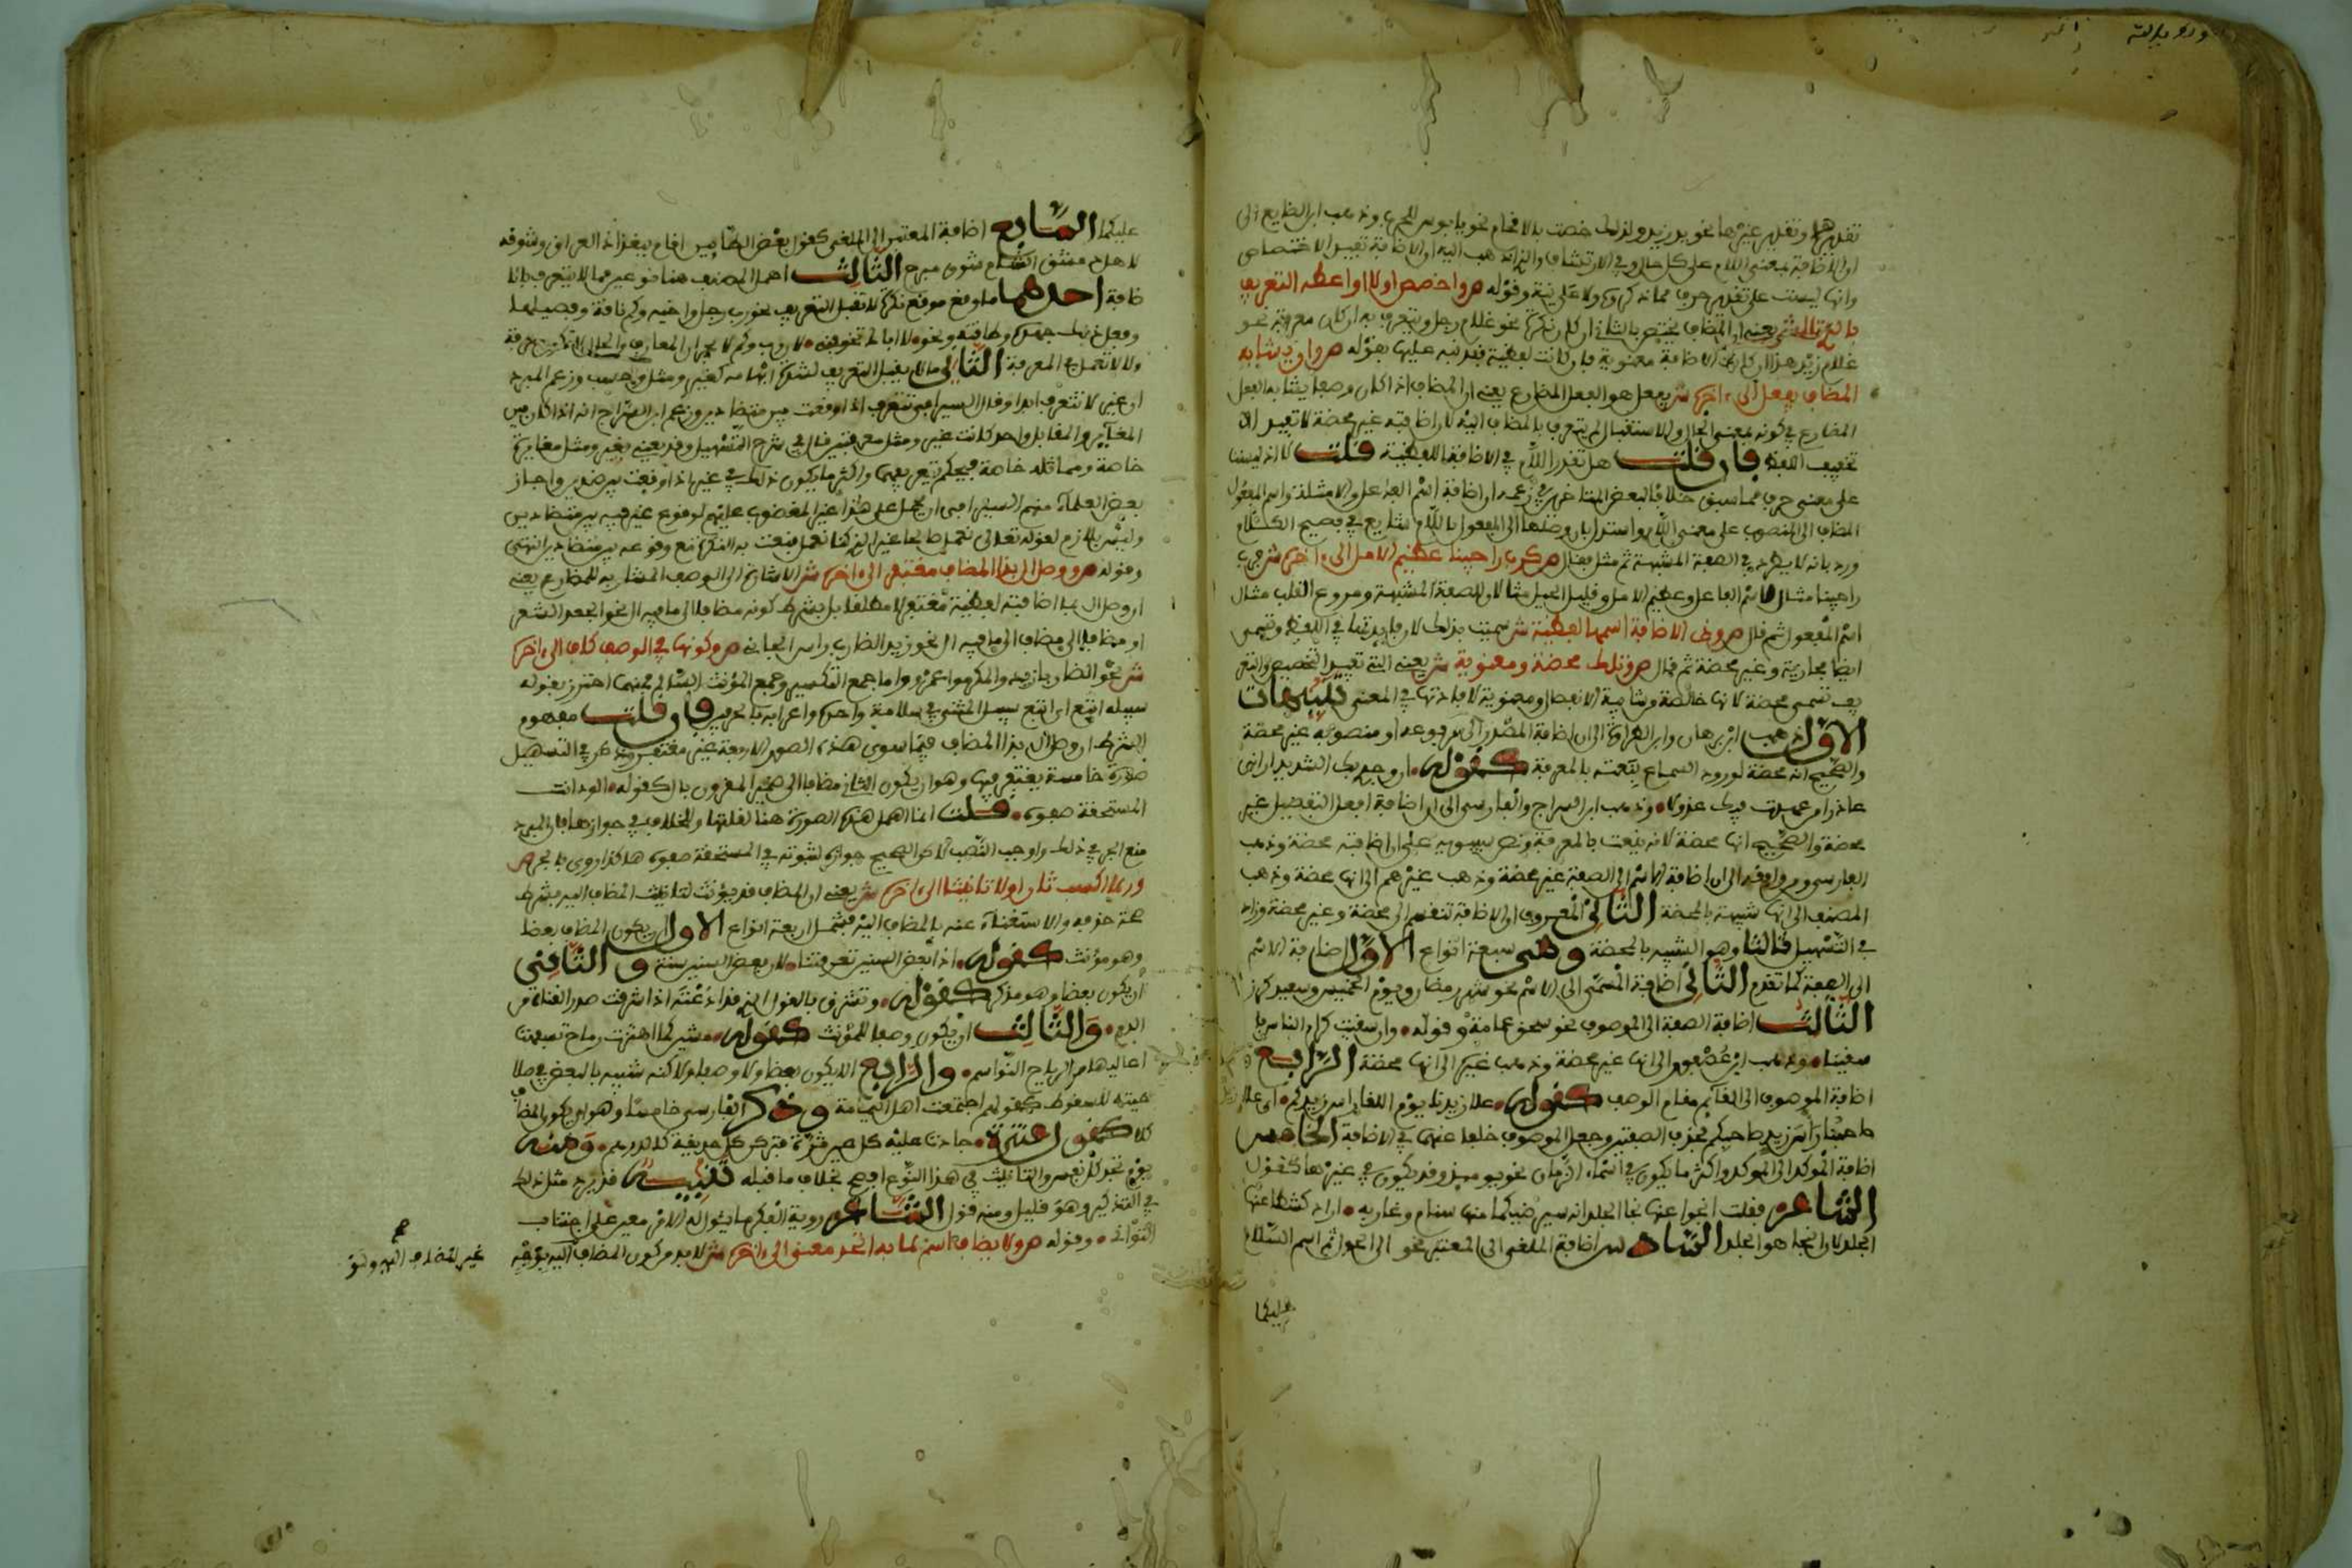 تقديرها وتقدير غيرها نحو يد زيد ولذلك خصت بالاقحام نحو يا بوس للحرب وذهب ابن الضايع الى
ان الاضافة بمعنى اللام على كل حال وفي الارتشاف والذي اذهب اليه ان الاضافة تفيد الاختصاص
وانها ليست على تقدير حرف مما ذكروه ولا على نية وقوله ص واخصص اولا او اعطه التعريف
بالذي تلا ش يعني ان المضاف يختص بالثاني ان كان نكرة نحو غلام رجل ويتعرف به ان كان معرفة نحو
غلام زيد هذا ان كانت الاضافة معنوية فان كانت لفظية فقد نبه عليها بقوله ص وان يشابه
المضاف يفعل الى ءاخره ش يفعل هو الفعل المضارع يعني ان المضاف اذا كان وصفا يشابه الفعل
المضارع في كونه بمعنى الحال او الاستقبال لم يتعرف بالمضاف اليه لان اضافته غير محضة لا تفيد الا
تخفيف اللفظ فان قلت هل تقدر اللام في الاضافة اللفظية قلت لا اذ ليست
على معنى حرف مما سبق خلافا لبعض المتاخرين في زعمه ان اضافة اسم الفاعل والامثلة واسم المفعول
المضاف الى المنصوب على معنى اللام واستدل بان وصلها الى المفعول باللام شايع في فصيح الكلام
ورد بانه لا يطرد في الصفة المشبهة ثم مثل فقال ص كرب راجينا عظيم الامل الى ءاخره ش فرب
راجينا مثال لاسم الفاعل وعظيم الامل وقليل الحيل مثالان للصفة المشبهة ومروع القلب مثال
اسم المفعول ثم قال ص وذي الاضافة اسمها لفظية ش سميت بذلك لان فايدتها في اللفظ وتسمى
ايضا مجازية وغير محضة ثم قال ص وتلك محضة ومعنوية ش يعني التي تفيد التخصيص والتعر
يف تسمى محضة لانها خالصة من شايبة الانفصال ومعنوية لافادتها في المعنى تنبيهات
الاول ذهب ابن برهان وابن الطراوة الى ان اضافة المصدر الى مرفوعه او منصوبه غير محضة
والصحيح انه محضة لورود السماع بنعته بالمعرفة كقوله ان وجدي بك الشديد اراني
عاذرا من عهدت فيك عذولا وذهب ابن السراج والفارسي الى ان اضافة افعل التفضيل غير
محضة والصحيح انها محضة لانه ينعت بالمعرفة ونص سيبويه على ان اضافته محضة وذهب
الفارسي ومن وافقه الى ان اضافة الاسم الى الصفة غير محضة وذهب غيرهم الى انها محضة وذهب
المصنف الى انها شبيهة بالمحضة الثاني المعروف ان الاضافة تنقسم الى محضة وغير محضة وزاد
في التسهيل ثالثا وهو الشبيه بالمحضة وهي سبعة انواع الاول اضافة الاسم
الى الصفة كما تقدم الثاني اضافة المسمى الى الاسم نحو شهر رمضان ويوم الخميس وسعيد كرز
الثالث اضافة الصفة الى الموصوف نحو سحق عمامة وقوله وان سقيت كرام الناس فا
سقينا وذهب ابن عصفور الى انها غير محضة وذهب غيره الى انها محضة الرابع
اضافة الموصوف الى القائم مقام الوصف كقوله علا زيدنا يوم اللقا راس زيدكم اي علا زيد
صاحبنا راس زيد صاحبكم فحذف الصفتين وجعل الموصوف خلفا عنهما في الاضافة الخامس
اضافة المؤكد الى المؤكد واكثر ما يكون في اسماء الزمان نحو يوميذ وقد يكون في غيرها كقول
الشاعر فقلت انجوا عنها نجا الجلد انه سيرضيكما منها سنام وغاربه اراد كشطا عنها
الجلد لان النجا هو الجلد السادس اضافة الملغى الى المعتبر نحو الى الحول ثم اسم السلام
عليكما
عليكما السابع اضافة المعتبر الى الملغى كقول بعض الطاييين اقام ببغداد العراق وشوقه
لاهل دمشق الشام شوق مبرح الثالث اهمل المصنف هنا نوعين مما لا يتعرف بالا
ضافة احدهما ما وقع موقع نكرة لا تقبل التعريف نحو رب رجل واخيه وكم ناقة وفصيلها
وفعل ذلك جهده وطاقته ونحو لا اباك تخوفيني لان رب وكم لا يجران المعارف والحال لا تكون معرفة
ولا لا تعمل في المعرفة الثاني ما لا يقبل التعريف لشدة ابهامه كغير ومثل وحسب وزعم المبرد
ان غير لا تتعرف ابدا وقال السيرافي تتعرف اذا وقعت بين متضادين وزعم ابن السراج انه اذا كان بين
المغاير والمقابل واحد كانت غير ومثل معرفتين قال في شرح التسهيل وقد يعنى بغير ومثل مغايرة
خاصة ومماثلة خاصة فيحكم بتعريفهما واكثر ما يكون ذلك في غير اذا وقعت بين ضدين واجاز
بعض العلماء منهم السيرافي ان يحمل على هذا غير المغضوب عليهم لوقوع غير فيه بين متضادين
وليس بلازم لقوله تعالى نعمل صالحا غير الذي كنا نعمل فنعت به النكرة مع وقوعه بين متضادين انتهى
وقوله ص ووصل ال بذا المضاف مغتفر الى ءاخره ش الاشارة الى الوصف المشابه للمضارع يعني
ان وصل ال بما اضافته لفظية مغتفر لا مطلقا بل بشرط كونه مضافا الى ما فيه ال نحو الجعد الشعر
او مضافا الى مضاف الى ما فيه ال نحو زيد الضارب راس الجاني ص وكونها في الوصف كاف الى ءاخره
ش نحو الضاربا زيد والمكرموا عمرو واما جمع التكسير وجمع المؤنث السالم فعنهما احترز بقوله
سبيله اتبع اي اتبع سبيل المثنى في سلامة واحده واعرابه بالحرف فان قلت مفهوم
الشرط ان وصل ال بذا المضاف فيما سوى هذه الصور الاربعة غير مغتفر وذكر في التسهيل
صورة خامسة يغتفر فيها وهو ان يكون الثاني مضافا الى ضمير المقرون بال كقوله الود انت
المستحقة صفوه قلت انما اهمل هذه الصورة هنا لقلتها والخلاف في جوازها فان المبرد
منع الجر في ذلك واوجب النصب والصحيح جوازه لثبوته في المستحقة صفوه هكذا روي بالجر ص
وربما اكسب ثان اولا تانيثا الى ءاخره ش يعني ان المضاف قد يؤنث لتانيث المضاف اليه بشرط
صحة حذفه والاستغناء عنه بالمضاف اليه فيشمل اربعة انواع الاول ان يكون المضاف بعضا
وهو مؤنث كقوله اذا بعض السنين تعرقتنا لان بعض السنين سنة والثاني
ان يكون بعضا وهو مذكر كقوله وتشرق بالقول الذي قد اذعته كما شرقت صدر القناة من
الدم والثالث ان يكون وصفا للمؤنث كقوله مشين كما اهتزت رماح تسفهت
اعاليها مر الرياح النواسم والرابع الا يكون بعضا ولا وصفا ولاكنه شبيه بالبعض في صلا
حيته للسقوط كقولهم اجتمعت اهل اليمامة وذكر الفارسي خامسا وهو ان يكون المضاف
كلا كقول عنترة جادت عليه كل عين ثرة فتركن كل حديقة كالدرهم ومنه
يوم تجد كل نفس والتانيث في هذا النوع افصح بخلاف ما قبله تنبيه قد يرد مثل ذلك
في التذكير وهو قليل ومنه قول الشاعر روية الفكر ما يئول له الامر معين على اجتناب
التواني وقوله ص ولا يضاف اسم لما به اتحد معنى الى ءاخره ش لا بد من كون المضاف اليه بوجه
غير المضاف اليه